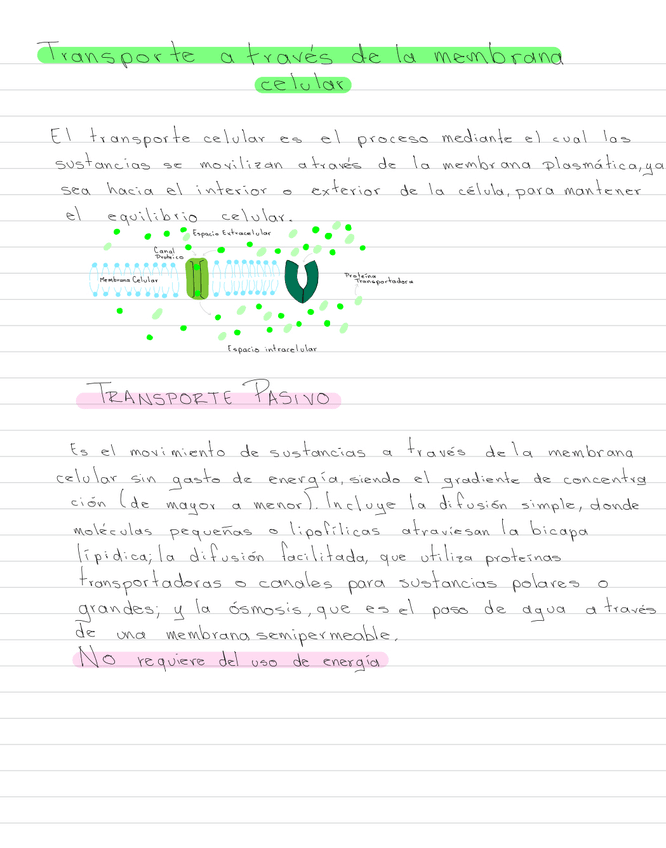 Transporte a través de la membrana
celular
El transporte celular es el proceso mediante el cual las
sustancias se movilizan através de la membrana plasmática, ya
sea hacia el interior o exterior de la célula, para mantener
el equilibrio celular.
Espacio Extracelular
Canal
Proteico
Membrana Celular
Proteína
Transportadora
Espacio intracelular
TRANSPORTE PASIVO
Es el movimiento de sustancias a través de la membrana
celular sin gasto de energía, siendo el gradiente de concentra
ción (de mayor a menor). Incluye la difusión simple, donde
moléculas pequeñas o lipofílicas atraviesan la bicapa
lipídica; la difusión facilitada, que utiliza proteínas
transportadoras o canales para sustancias polares o
grandes; y la ósmosis, que es el paso de agua a través
de una membrana semipermeable.
No requiere del uso de energía